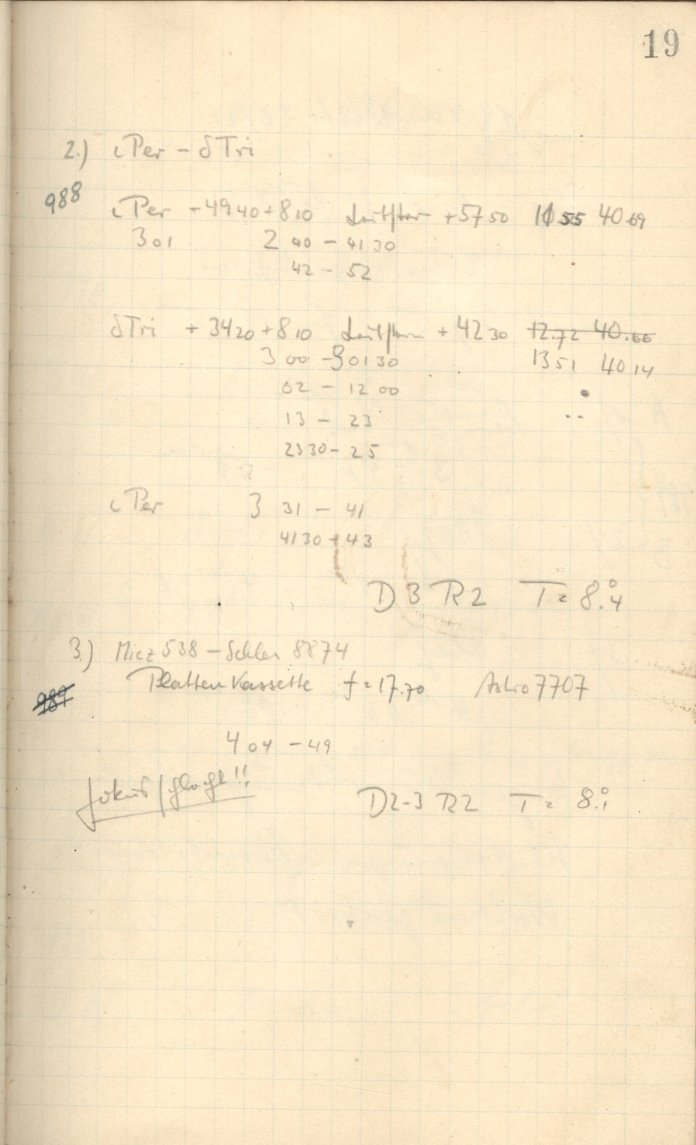 19
2.) ι Per – δ Tri
988
ι Per – 49 40 + 8 10 Leitstern + 57 50 10 55 40 69
3 01 2 40 – 41 30
42 – 52
δ Tri + 34 20 + 8 10 Leitstern + 42 30 12.72 40.66
3 00 – 3 01 30 13 51 40 14
02 – 12 00
13 – 23
23 30 – 25
ι Per 3 31 – 41
41 30 – 43
D 3 R 2 T = 8.°4
3.) 538 – 8874
989
Platten Kassette f = 17.70 Astro 7707
4 04 – 49
Fokus schlecht!!
D 2-3 R 2 T = 8.°1